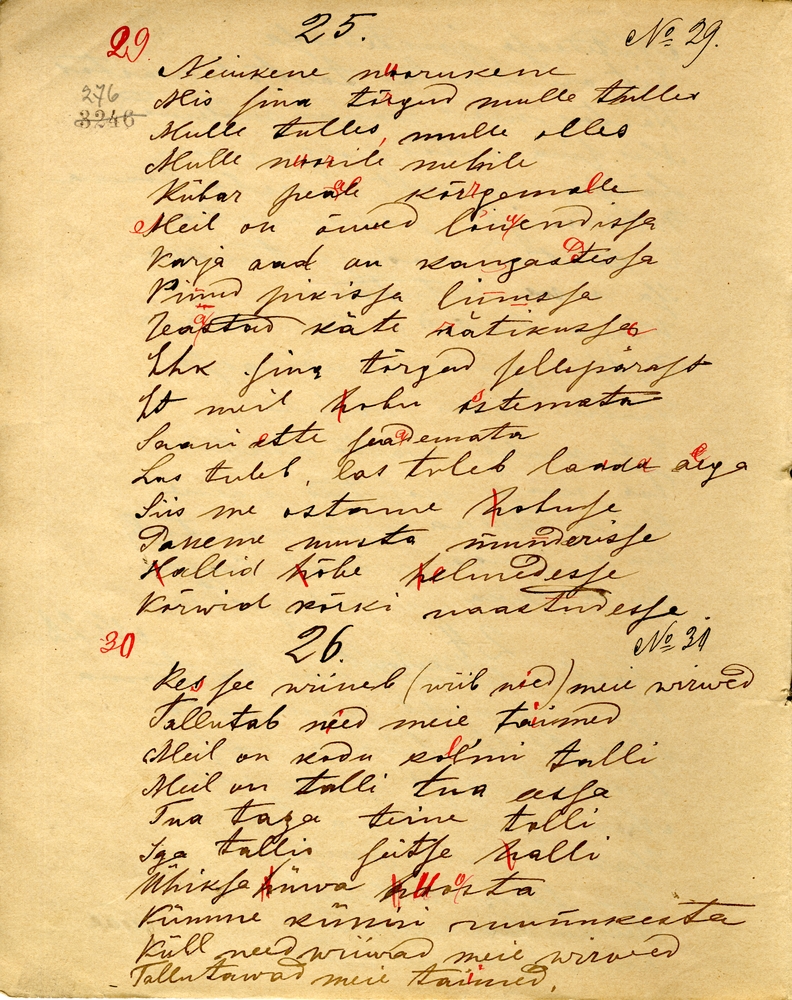 29 25. No 29.
Neiukene nuorukene
276
Mis sina tõrgud mulle tulles
3246
Mulle tulles, mulle olles
Mulle nuorile mehile
Kübar peale kõrgemalle
Meil on õuved lõuendissa
Karja aad on kangastessa
Pinud pikissa linussa
Teastad käte rätikussa
Ehk sina tõrgud sellepärast
Et meil hobu ostemata
Saani ette seademata
Las tuleb, las tuleb laada aega
Siis me ostame hobuse
Paneme musta munderisse
Hallid hõbe helmedesse
Kõrwid kõrki naastudesse
30 26. No 30
Kes see wiineb (wiib need) meie wirwed
Tallutab need meie taimed
Meil on kodu kolmi talli
Meil on talli tua assa
Tua taga teine talli
Iga tallis seitse halli
Ühiksa hüwa huosta
Kümme künni ruunukesta
Küll need wiiwad meie wirwed
Tallutawad meie taimed.